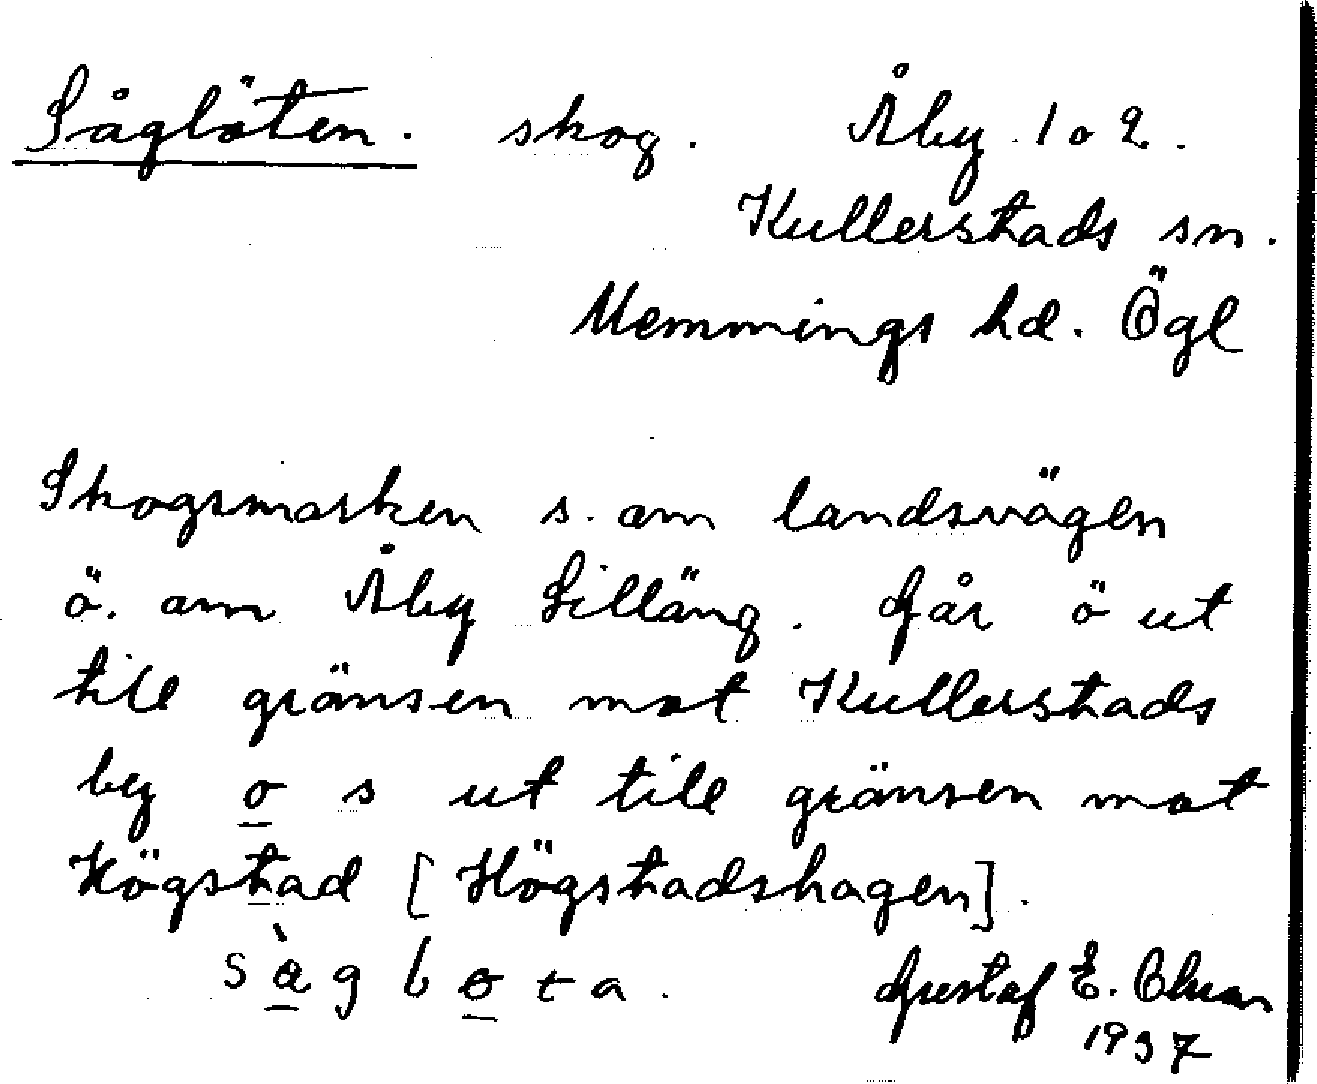 Såglöten. skog. Åby 1 o 2.
Kullerstads sn.
Memmings hd. Ögl
Skogsmarken s. om landsvägen
ö. om Åby Lilläng. Går ö ut
till gränsen mot Kullerstads
by o s ut till gränsen mot
Högstad [Högstadshagen].
Gustaf E.
1937